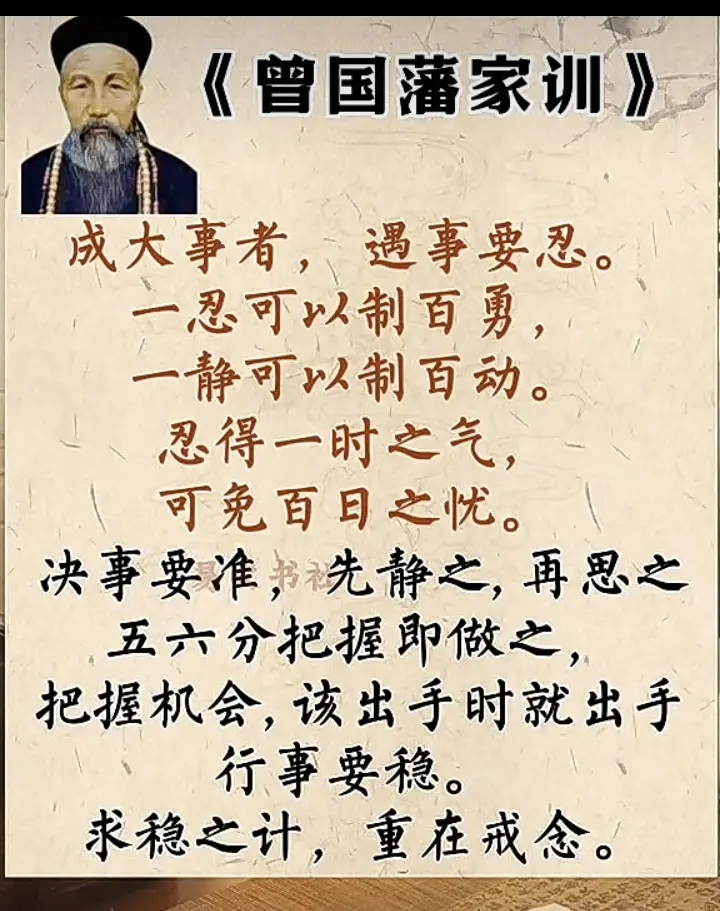 《曾国藩家训》
成大事者，遇事要忍。
一忍可以制百勇，
一静可以制百动。
忍得一时之气，
可免百日之忧。
决事要准，先静之，再思之
五六分把握即做之，
把握机会，该出手时就出手
行事要稳。
求稳之计，重在戒念。